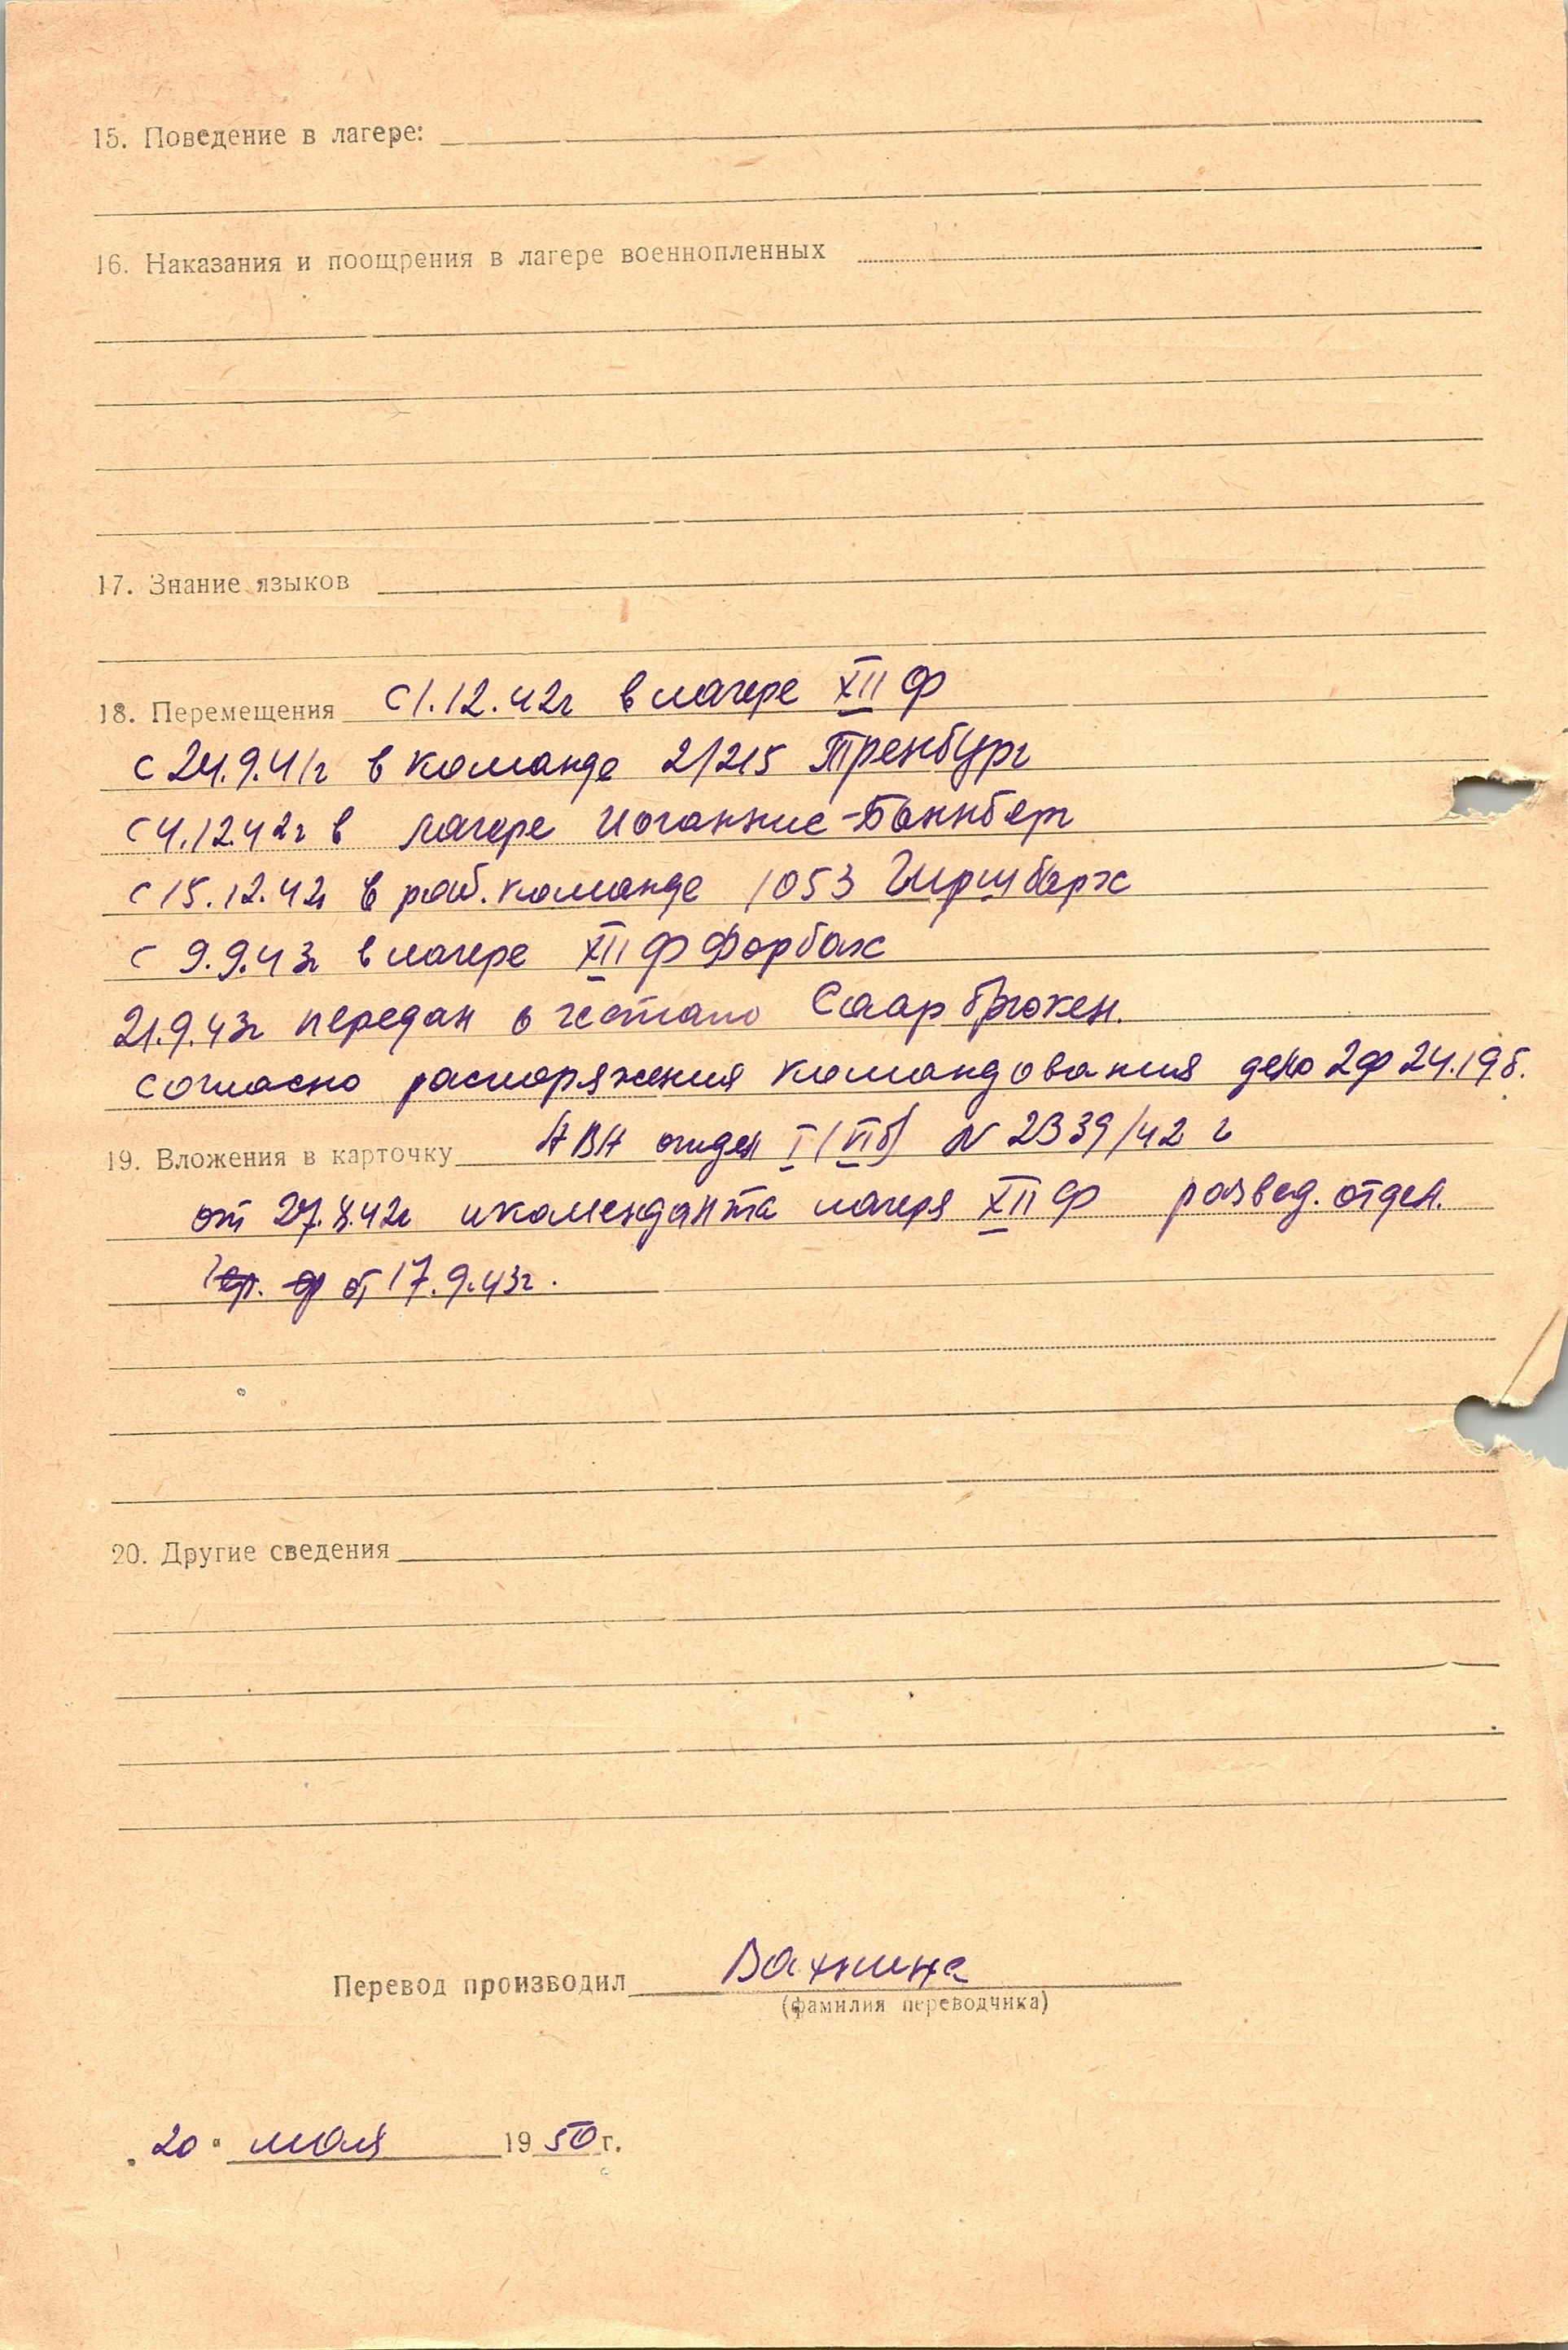 15. Поведение в лагере:
16. Наказания и поощрения в лагере военнопленных
17. Знание языков
18. Перемещения с 1.12.42г в лагере XII Ф
с 24.9.41г в команде 2/215 Тренбург
с 4.12.42г в лагере Иоганнис-Баннберг
с 15.12.42г в раб. команде 1053 Гиршбарх
с 9.9.43г в лагере XII Ф Форбах
21.9.43г передан в гестапо Саарбрюкен.
согласно распоряжения командования дело 2ф 24.19б.
19. Вложения в карточку АВА отдел I (VIб) N 2339/42 г
от 27.8.42г и коменданта лагеря XII Ф развед. отдел.
от 17.9.43г.
20. Другие сведения
Перевод производил Вахнина
(фамилия переводчика)
"20" мая 1950г.